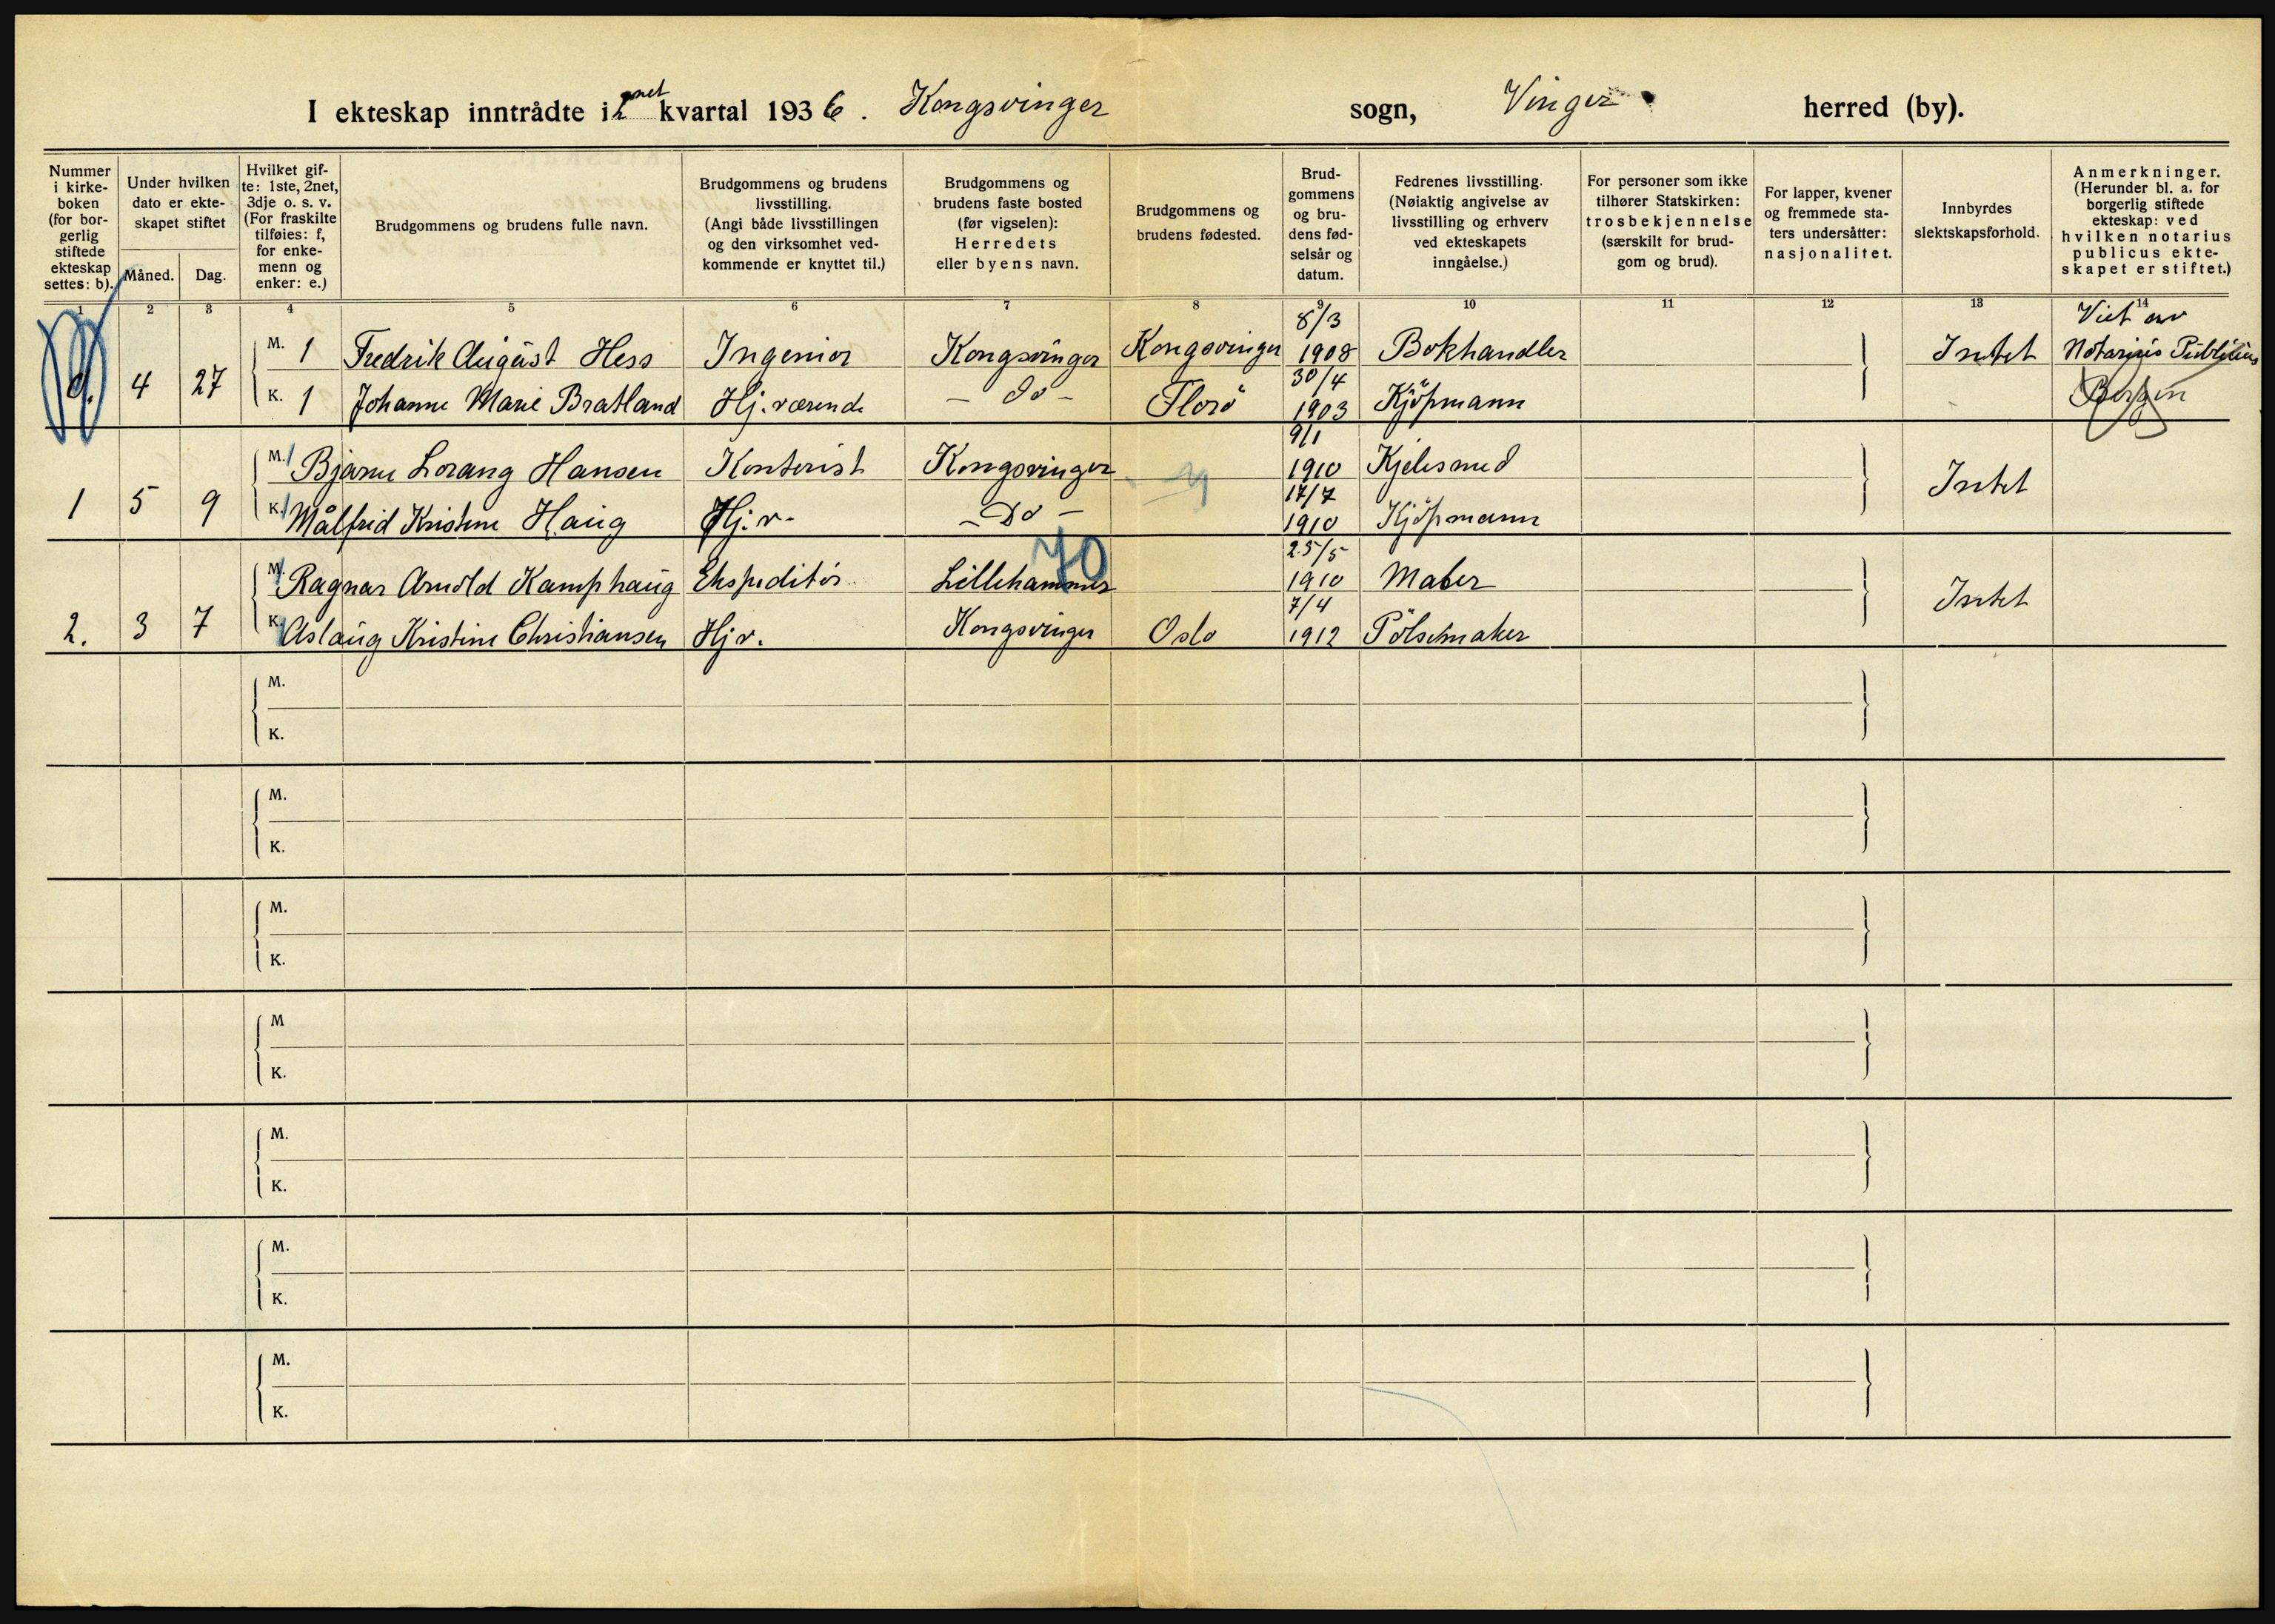 I ekteskap inntrådte i 2net kvartal 1936. Kongsvinger sogn, Vinger herred (by).
Nummer i kirke-boken (for bor-gerlig stiftede ekteskap settes: b).
Under hvilken dato er ekte-skapet stiftet
Måned. Dag.
Hvilket gif-te: 1ste, 2net, 3dje o. s. v. (For fraskilte tilføies: f, for enke-menn og enker: e.)
Brudgommens og brudens fulle navn.
Brudgommens og brudens livsstilling. (Angi både livsstillingen og den virksomhet ved-kommende er knyttet til.)
Brudgommens og brudens faste bosted (før vigselen): Herredets eller byens navn.
Brudgommens og brudens fødested.
Brud-gommens og bru-dens fød-selsår og datum.
Fedrenes livsstilling. (Nøiaktig angivelse av livsstilling og erhverv ved ekteskapets inngåelse.)
For personer som ikke tilhører Statskirken: trosbekjennelse (særskilt for brud-gom og brud).
For lapper, kvener og fremmede sta-ters undersåtter: nasjonalitet.
Innbyrdes slektskapsforhold.
Anmerkninger. (Herunder bl. a. for borgerlig stiftede ekteskap: ved hvilken notarius publicus ekte-skapet er stiftet.)
1 2 3 4 5 6 7 8 9 10 11 12 13 14
4 27 M. 1 Fredrik August Hess Ingeniør Kongsvinger Kongsvinger 8/3 1908 Bokhandler Intet Viet av Notarius Publicus
K. 1 Johanne Marie Bratland Hj. værende - do - Florö 30/4 1903 Kjöpmann Bergen
1 5 9 M. 1 Bjarne Lorang Hansen Kontorist Kongsvinger 9/1 1910 Kjelesmed Intet
K. 1 Målfrid Kristine Haug Hj. v. - Do - 17/7 1910 Kjöpmann
70
2. 3 7 M. Ragnar Arnold Kamphaug Ekspeditör Lillehammer 25/5 1910 Maler Intet
K. Aslaug Kristine Christiansen Hj v. Kongsvinger Oslo 7/4 1912 Pölsemaker
M.
K.
M.
K.
M.
K.
M
K.
M.
K.
M.
K.
M.
K.